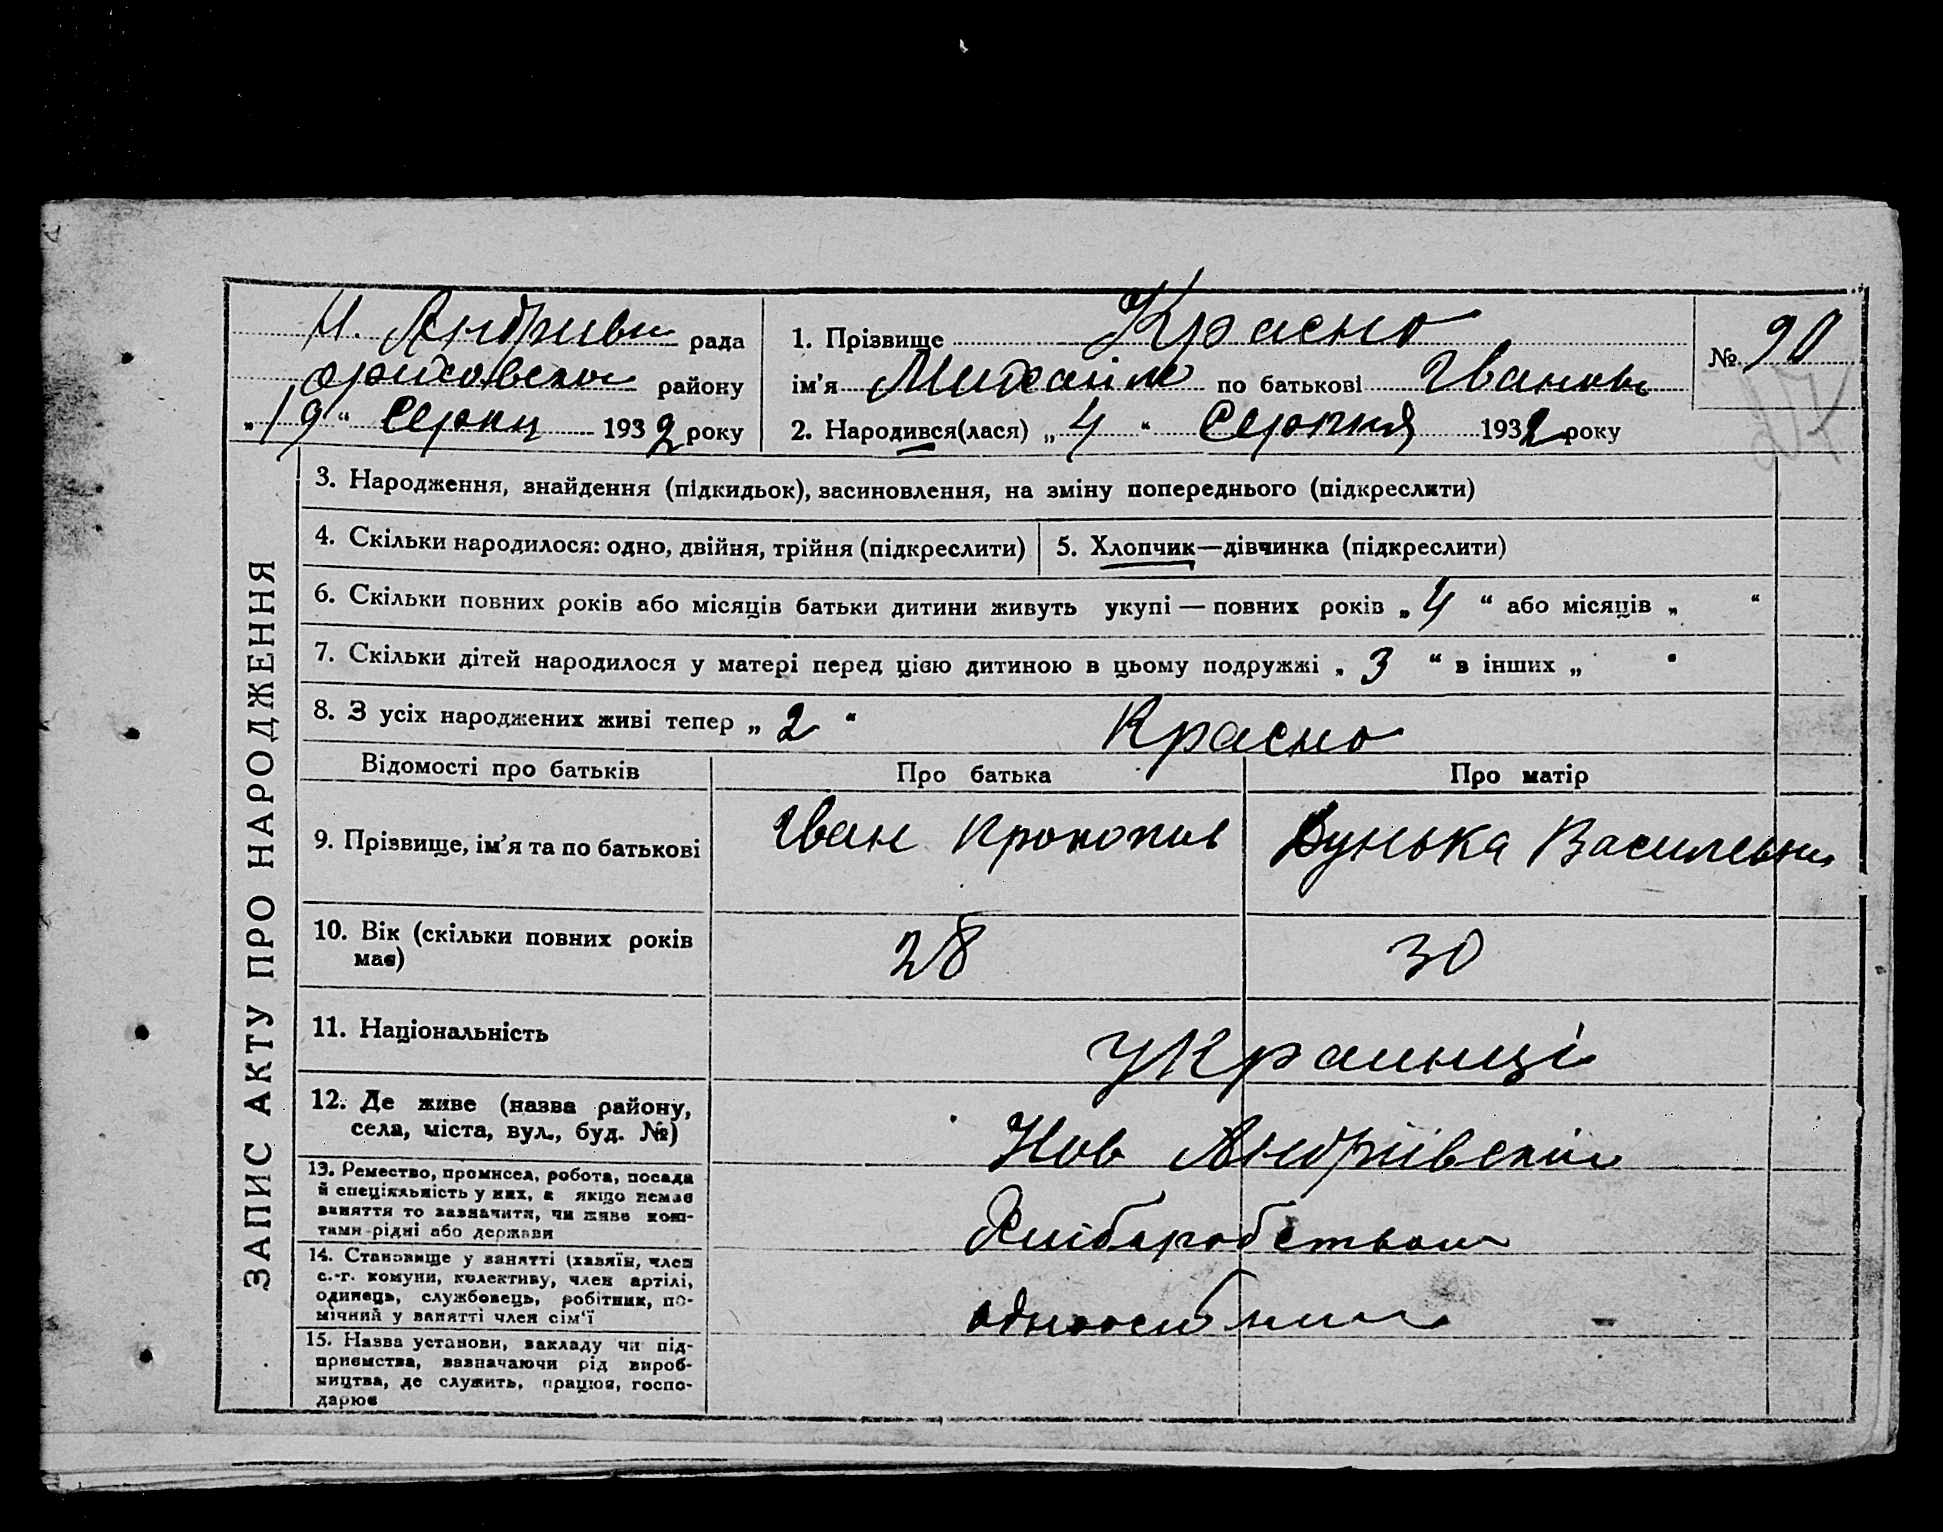 Н. Андриевк рада
оріховсько району
„19“ серпня 1932 року
1. Прізвище Красно
ім'я Михайло по батькові Іванов
2. Народився(лася) „4“ Серпня 1932 року
№ 90
ЗАПИС АКТУ ПРО НАРОДЖЕННЯ
3. Народження, знайдення (підкидьок), засиновлення, на зміну попереднього (підкреслити)
4. Скільки народилося: одно, двійня, трійня (підкреслити)
5. Хлопчик—дівчинка (підкреслити)
6. Скільки повних років або місяців батьки дитини живуть укупі — повних років „4“ або місяців „ “
7. Скільки дітей народилося у матері перед цією дитиною в цьому подружжі „3“ в інших „ “
8. З усіх народжених живі тепер „2“
Красно
Відомості про батьків
Про батька
Про матір
9. Прізвище, ім'я та по батькові
Іван Прокопів
Дунька Василевни
10. Вік (скільки повних років
має)
28
30
11. Національність
Украинці
12. Де живе (назва району,
села, міста, вул., буд. №)
Нов Андріівскій
13. Ремество, промисел, робота, посада
й спеціяльність у них, а якщо немає
заняття то зазначити, чи живе кош-
тами рідні або держави
Хліборобством
14. Становище у занятті (хазяїн, член
с.-г. комуни, колективу, член артілі,
одинець, службовець, робітник, по-
мічний у занятті член сім'ї
одноосібник
15. Назва установи, закладу чи під-
приємства, зазначаючи рід вироб-
ництва, де служить, працює, госпо-
дарює